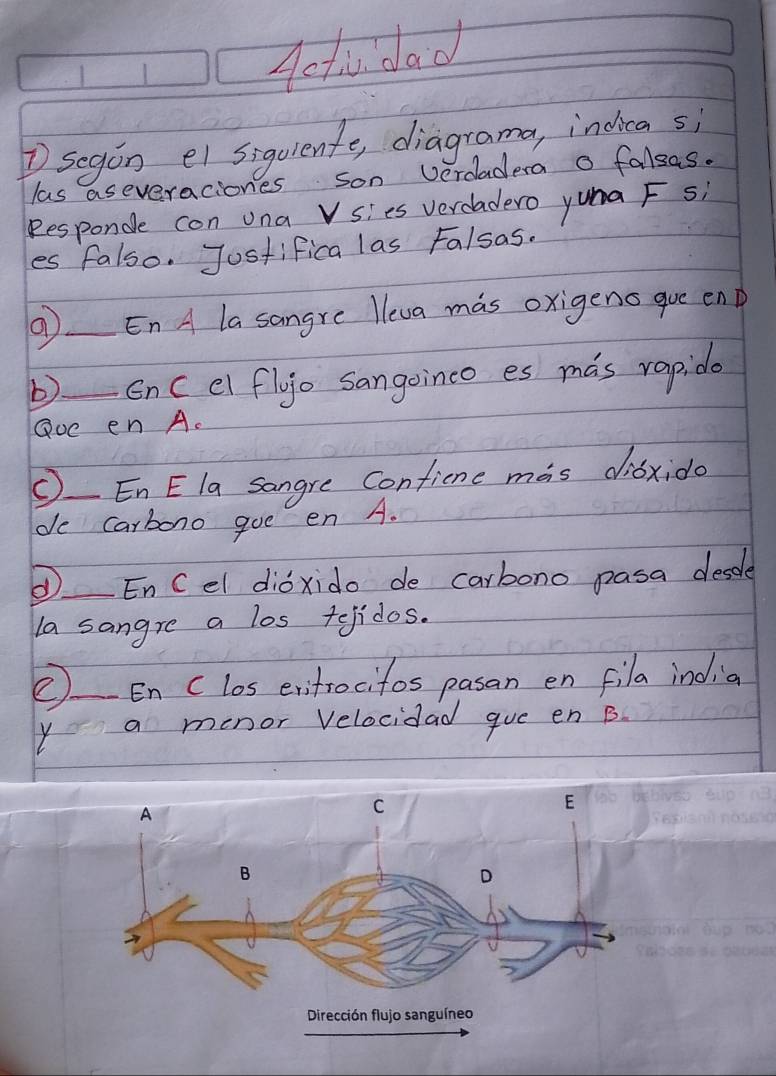 Actividad
I) según el siguiente, diagrama, indica si
las aseveraciones son verdadera o falsas.
Responde con una V si es verdadero y una F si
es falso. Justifica las Falsas.
a) __ En A la sangre lleva más oxigeno que en D
b) __ en C el flujo sanguineo es más rapido
Que en A.
c) __ En E la sangre contiene más dióxido
de carbono que en A.
d) __ En C el dióxido de carbono pasa desde
la sangre a los tejidos.
e) __ En C los eritrocitos pasan en fila india
y a menor velocidad que en B.
A C E
B D
Dirección flujo sanguíneo